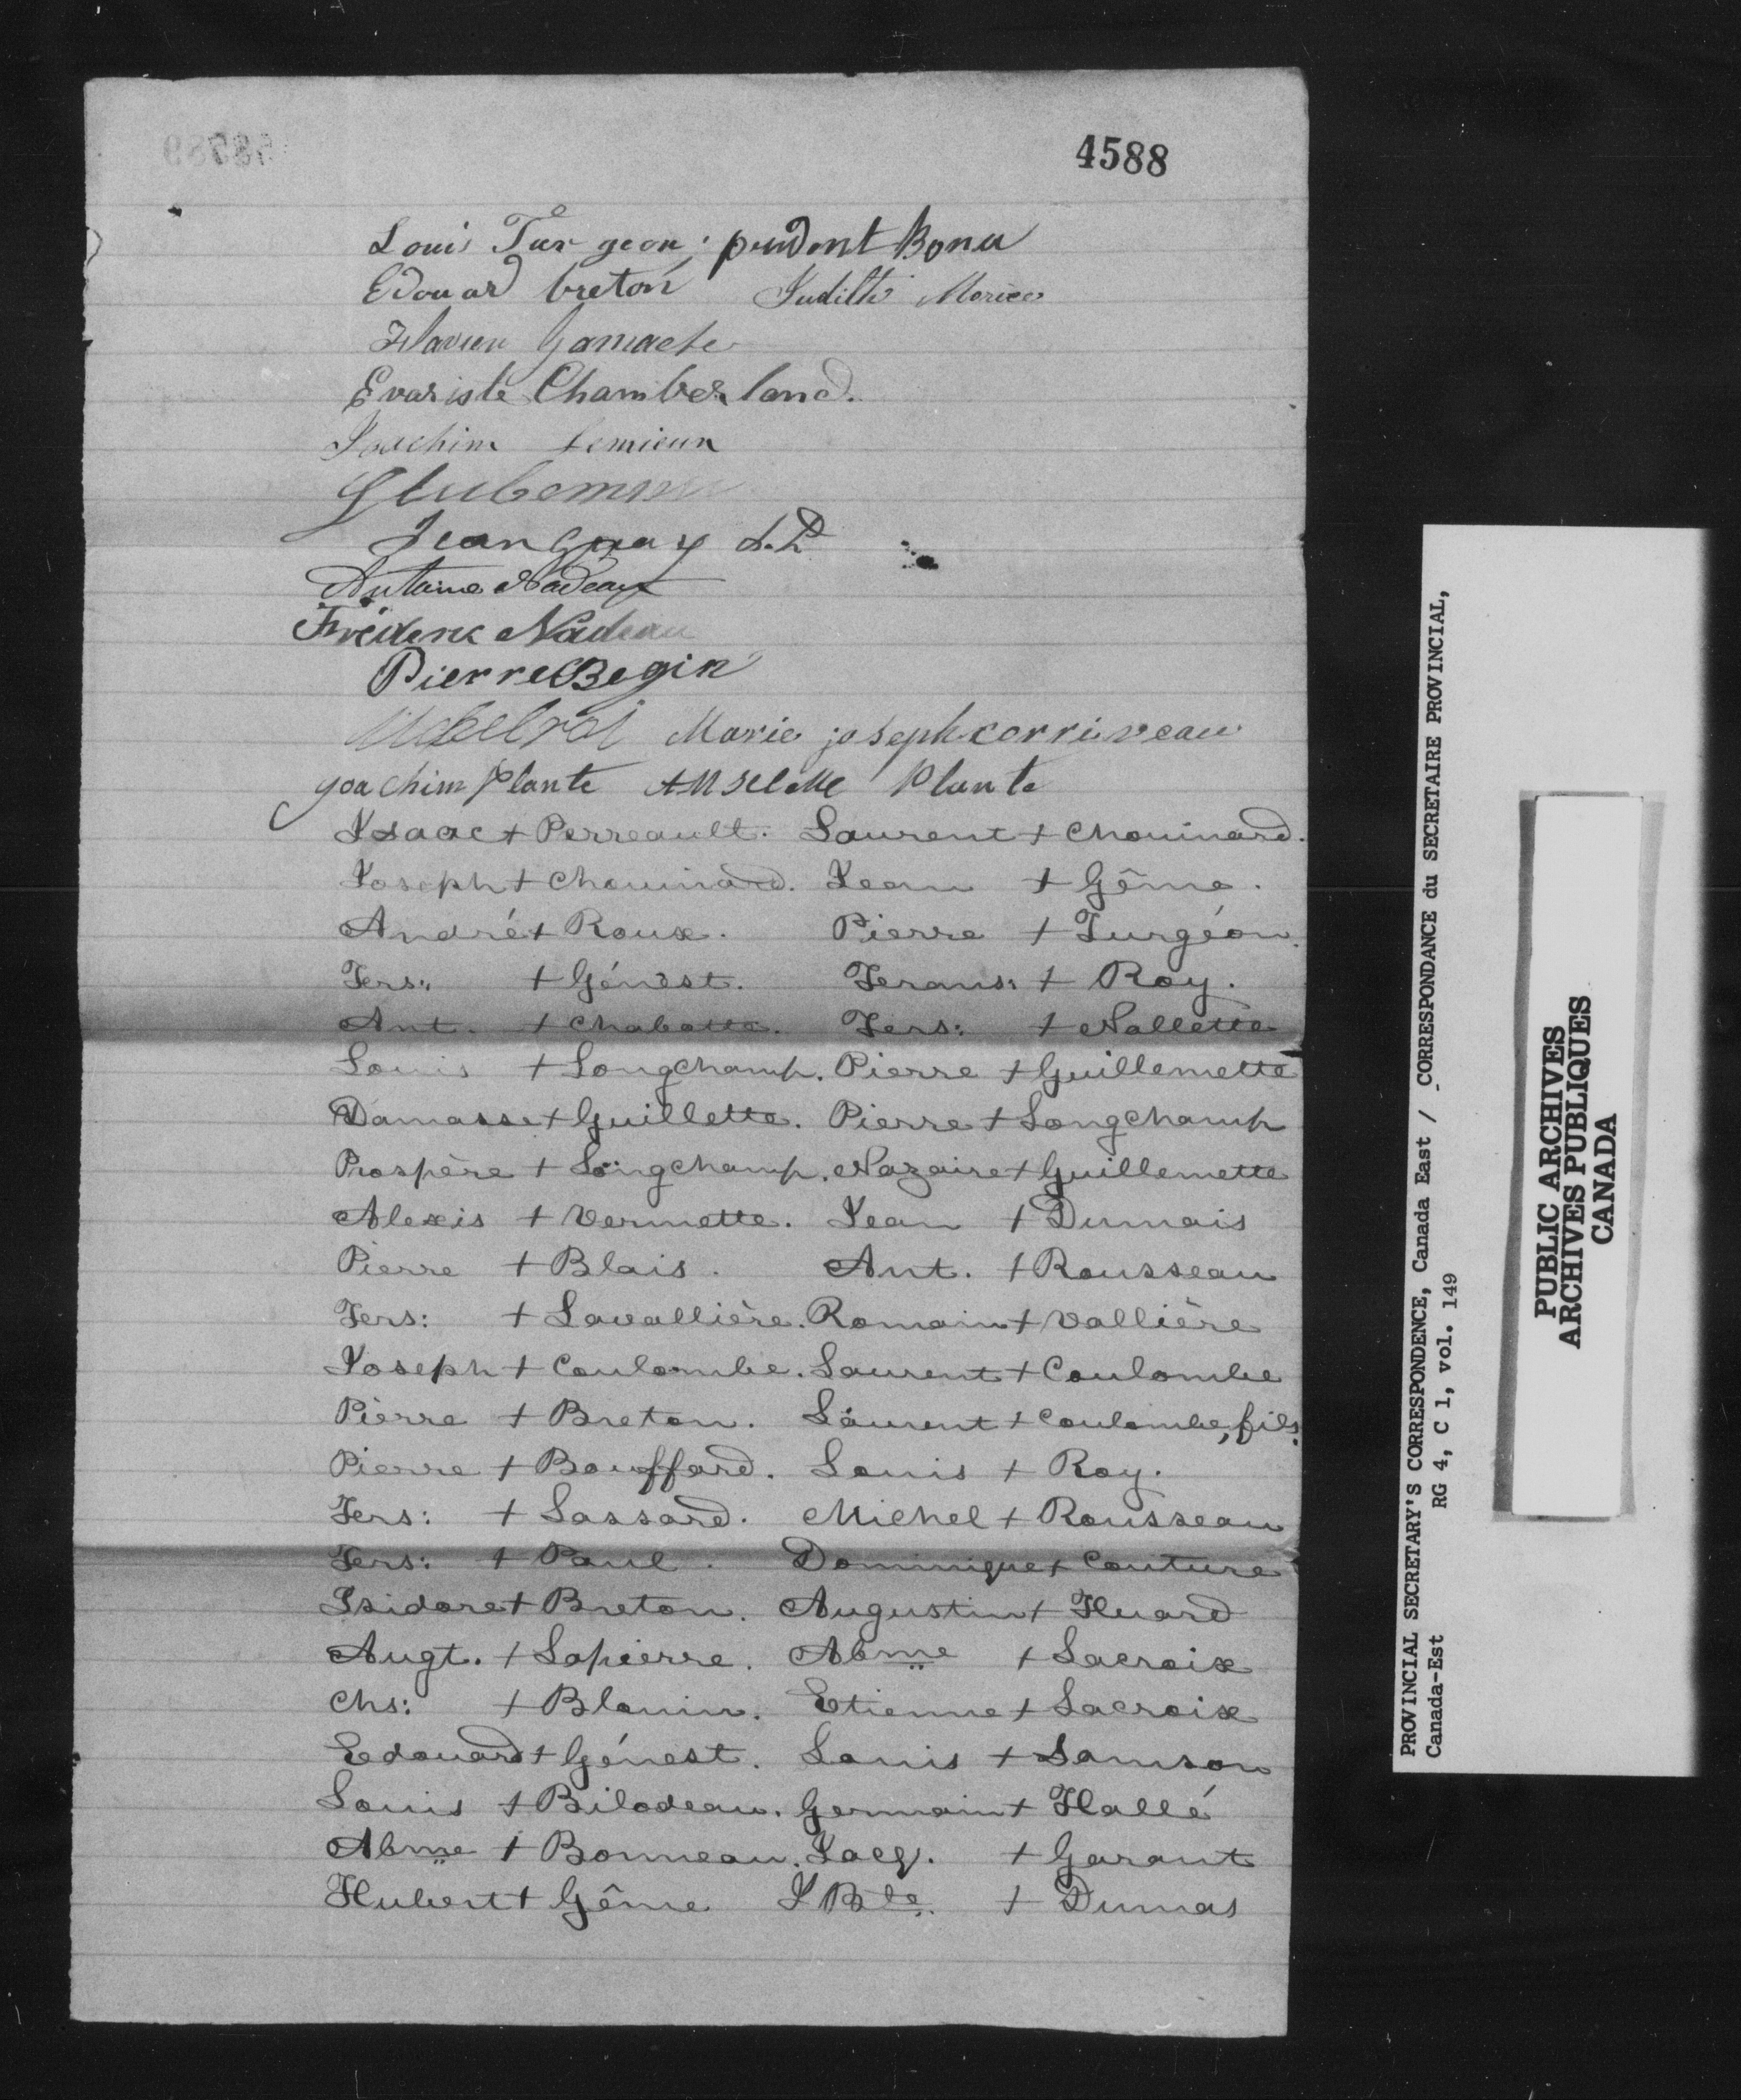 4588
Louis Turgeon prudent Bonu
Edouard breton Judith Morice
Flavien Gamache
Evariste Chamberland.
Joachim Lemieux
Jean Guay
Antoine Nadeau
Fréderic Nadeau
Pierre Begin
Marie joseph corriveau
joachim Plante Anselme Plante
Isaac + Perreault. Laurent + Chouinard.
Joseph + Chouinard. Jean + Gême.
André + Roux. Pierre + Turgéon.
Frs: + Génest. Frans: + Roy.
Ant. + Chabotte. Frs: + Nollette
Louis + Longchamp. Pierre + Guillemette
Damasse + Guillette. Pierre + Longchamp
Prospère + Longchamp. Nazaire + Guillemette
Alexis + Vermette. Jean + Dumais
Pierre + Blais. Ant. + Rousseau
Frs: + Lavallière. Romain + Vallière
Joseph + Coulombe. Laurent + Coulombe
Pierre + Breton. Laurent + Coulombe, fils.
Pierre + Bouffard. Louis + Roy.
Frs: + Lassard. Michel + Rousseau
Frs: + Paul. Dominique + Couture
Isidore + Breton. Augustin + Huard
Augt. + Lapierre. Abme + Lacroix
Chs: + Blouin. Etienne + Lacroix
Edouard + Génest. Louis + Samson
Louis + Bilodeau. Germain + Hallé
Abme + Bonneau. Jacq. + Garant
Hubert + Gême J Bte. + Dumas
PROVINCIAL SECRETARY'S CORRESPONDENCE, Canada East / CORRESPONDANCE du SECRETAIRE PROVINCIAL,
Canada-Est RG 4, C 1, vol. 149
PUBLIC ARCHIVES
ARCHIVES PUBLIQUES
CANADA